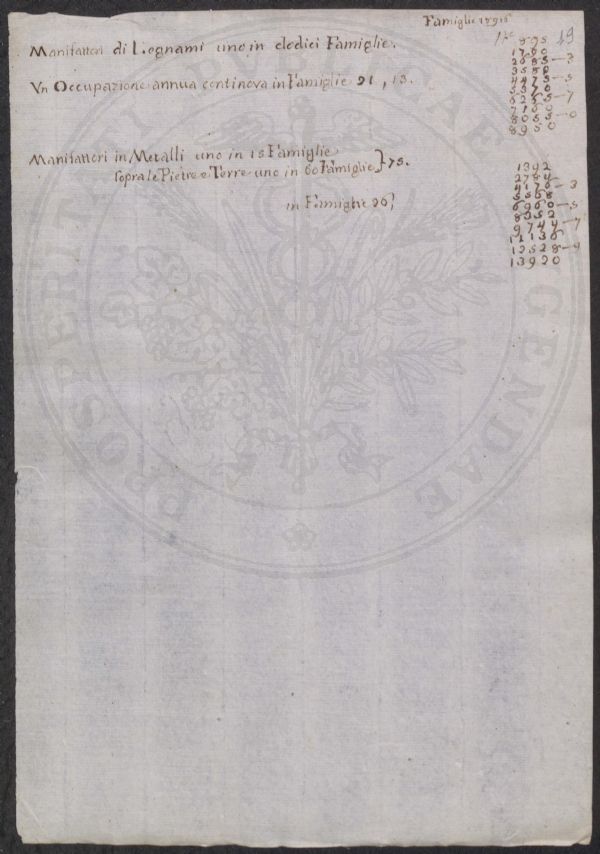 Famiglie
19
Manifattori di Legnami uno in dodici Famiglie.
Vn Occupazione annua continova in Famiglie 21, 13.
895
1790
2685 — 3
3580
4475 — 5
5370
6265 — 7
7160
8055
8950
Manifattori in Metalli uno in 15 Famiglie
sopra le Pietre e Terre uno in 60 Famiglie } 75.
in Famiglie
1392
2784
4176 — 3
5568
6960 — 5
8352
9744 — 7
11136
12528 — 9
13920
PROSPERITATI PUBLICAE AUGENDAE